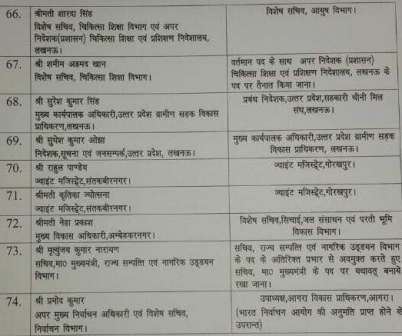 66.
श्रीमती शारदा सिंह
विशेष सचिव, चिकित्सा शिक्षा विभाग एवं अपर
निदेशक(प्रशासन) चिकित्सा शिक्षा एवं प्रशिक्षण निदेशालय,
लखनऊ।
विशेष सचिव, आयुष विभाग।
67.
श्री शमीम अहमद खान
विशेष सचिव, चिकित्सा शिक्षा विभाग।
वर्तमान पद के साथ अपर निदेशक (प्रशासन)
चिकित्सा शिक्षा एवं प्रशिक्षण निदेशालय, लखनऊ के
पद पर तैनात किया जाना।
68.
श्री सुरेश कुमार सिंह
मुख्य कार्यपालक अधिकारी,उत्तर प्रदेश ग्रामीण सड़क विकास
प्राधिकरण,लखनऊ।
प्रबंध निदेशक,उत्तर प्रदेश,सहकारी चीनी मिल
संघ,लखनऊ।
69.
श्री सुधेश कुमार ओझा
निदेशक,सूचना एवं जनसम्पर्क,उत्तर प्रदेश, लखनऊ।
मुख्य कार्यपालक अधिकारी,उत्तर प्रदेश ग्रामीण सड़क
विकास प्राधिकरण, लखनऊ।
70.
श्री राहुल पाण्डेय
ज्वाइंट मजिस्ट्रेट,संतकबीरनगर।
ज्वाइंट मजिस्ट्रेट,गोरखपुर।
71.
श्रीमती कृतिका ज्योत्सना
ज्वाइंट मजिस्ट्रेट,संतकबीरनगर।
ज्वाइंट मजिस्ट्रेट,गोरखपुर।
72.
श्रीमती नेहा प्रकाश
मुख्य विकास अधिकारी,अम्बेडकरनगर।
विशेष सचिव,सिंचाई,जल संसाधन एवं परती भूमि
विकास विभाग।
73.
श्री मृत्युंजय कुमार नारायण
सचिव,मा0 मुख्यमंत्री, राज्य सम्पत्ति एवं नागरिक उड्डयन
विभाग।
सचिव, राज्य सम्पत्ति एवं नागरिक उड्डयन विभाग
के पद के अतिरिक्त प्रभार से अवमुक्त करते हुए
सचिव, मा0 मुख्यमंत्री के पद पर यथावत् बनाये
रखा जाना।
74.
श्री प्रमोद कुमार
अपर मुख्य निर्वाचन अधिकारी एवं विशेष सचिव,
निर्वाचन विभाग।
उपाध्यक्ष,आगरा विकास प्राधिकरण,आगरा।
(भारत निर्वाचन आयोग की अनुमति प्राप्त होने के
उपरान्त)